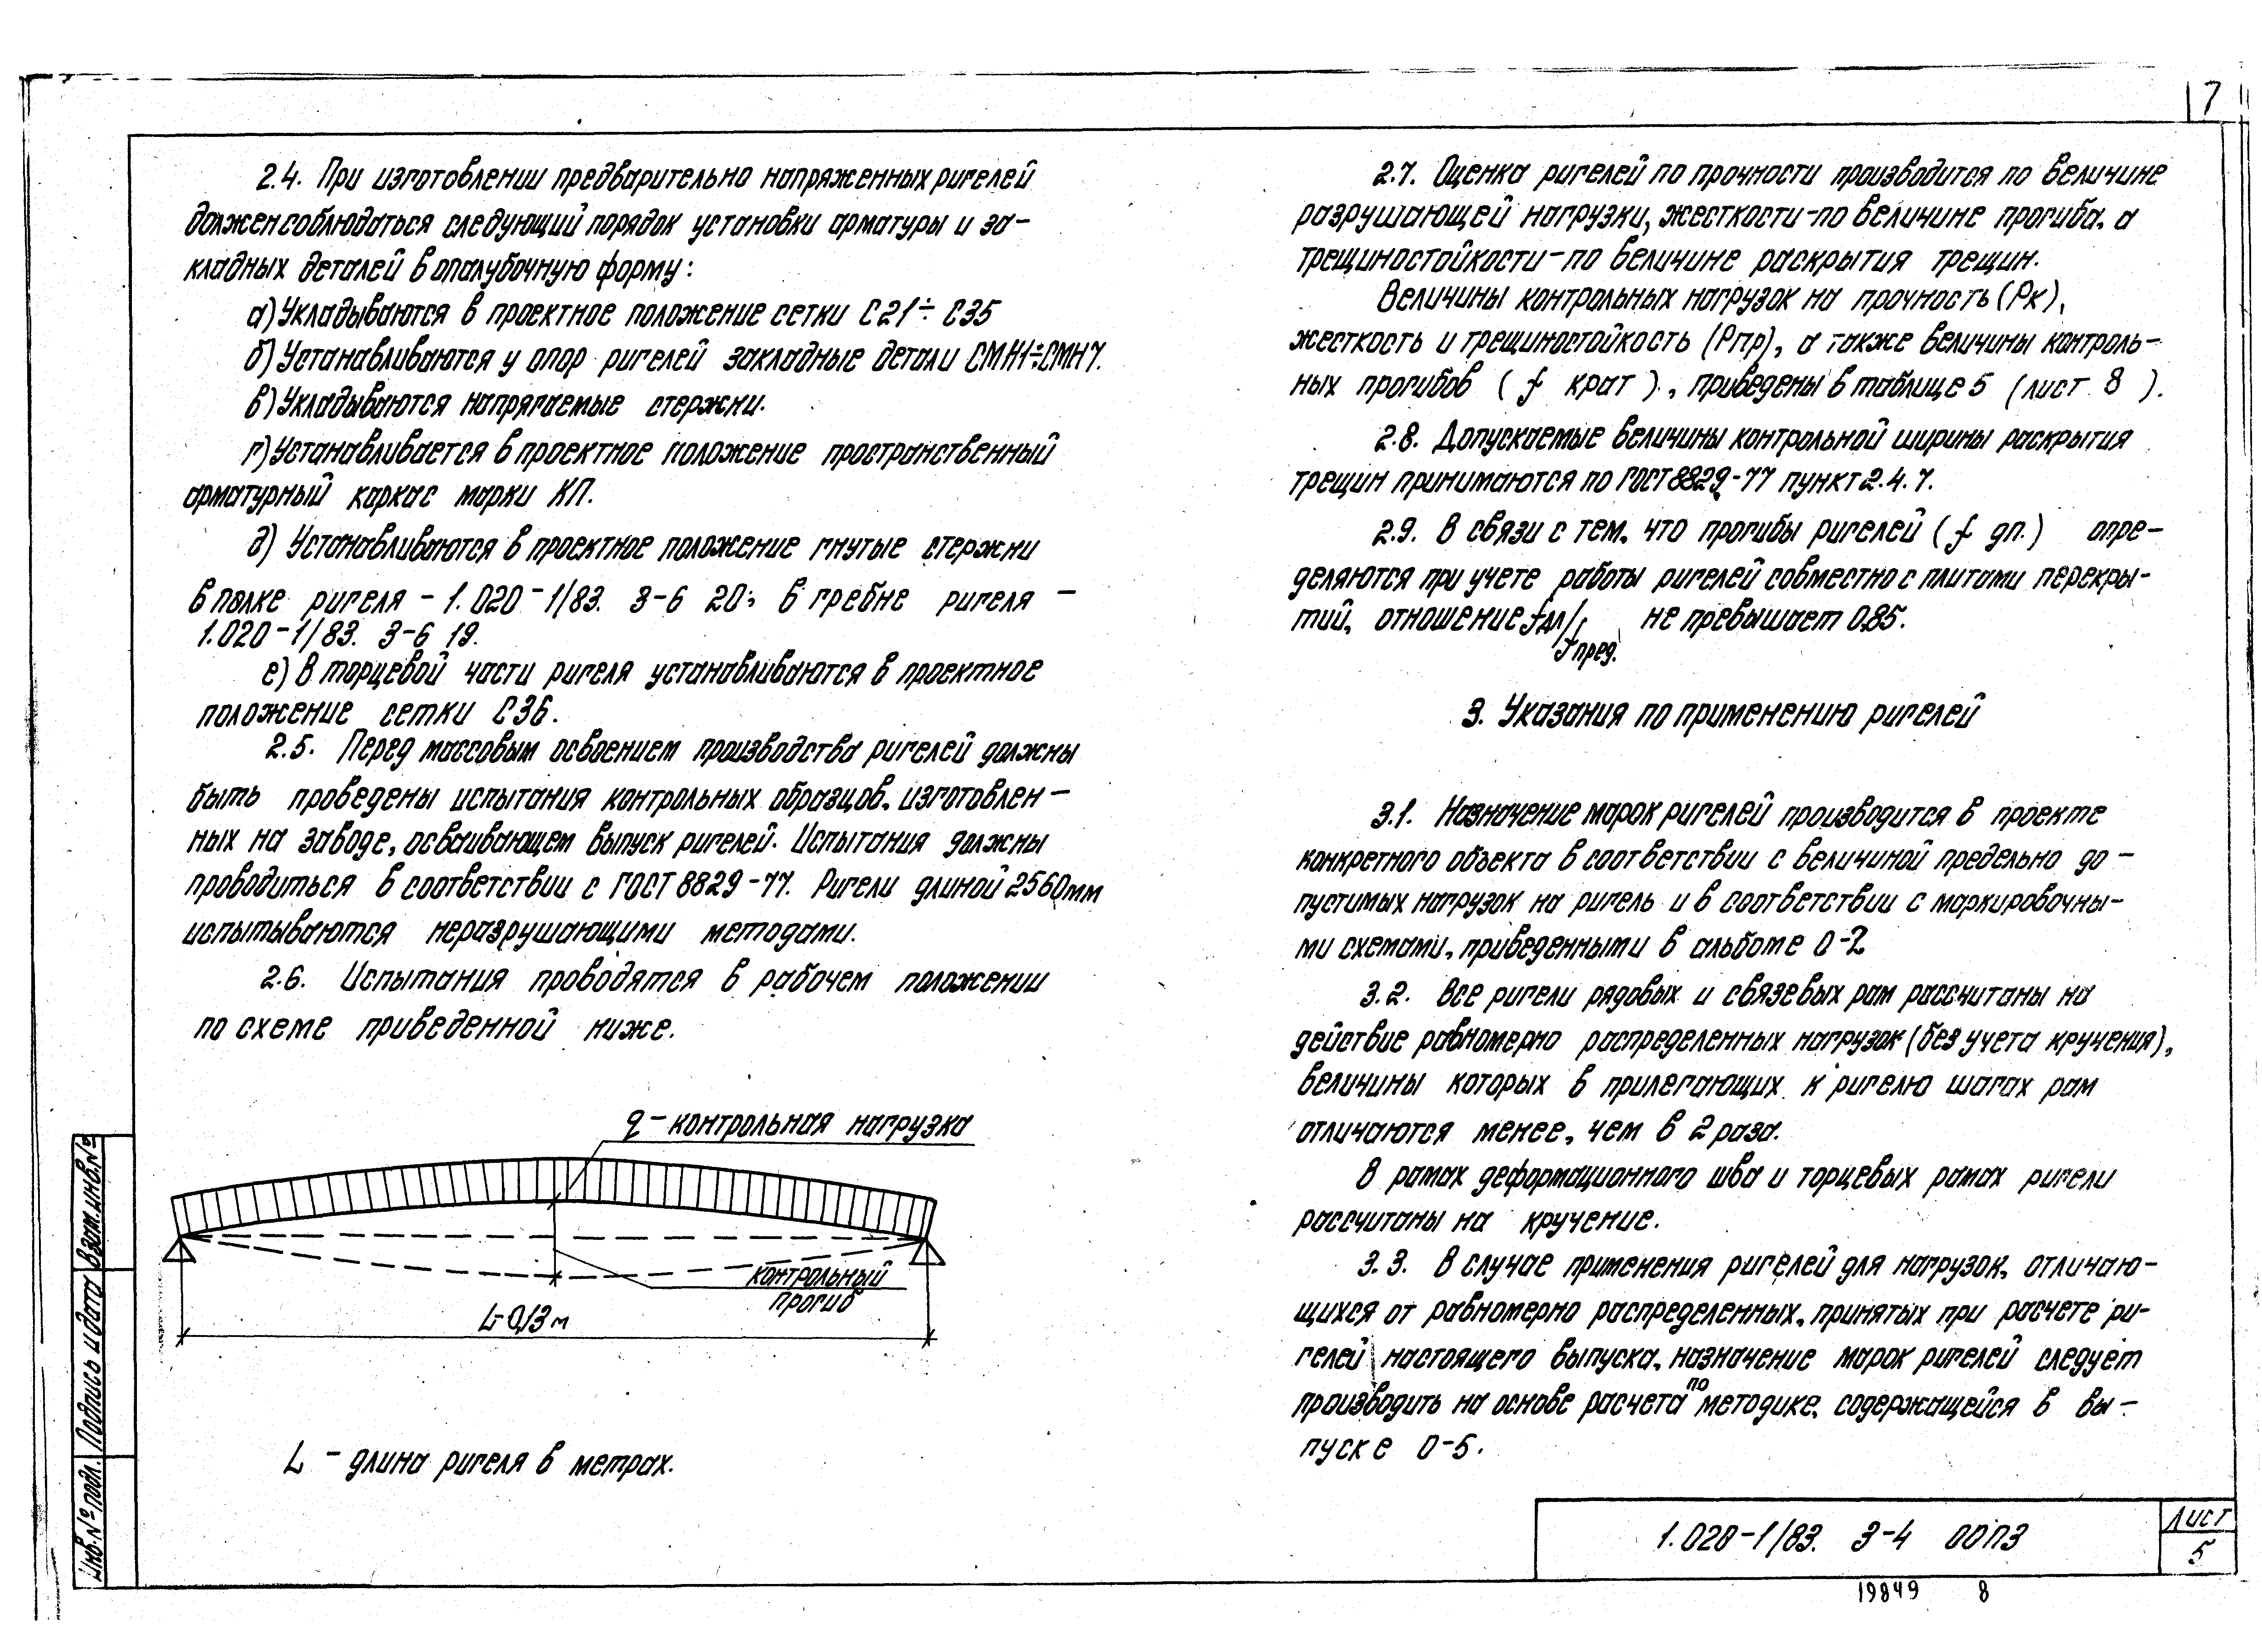 7
2.4. При изготовлении предварительно напряженных ригелей
должен соблюдаться следующий порядок установки арматуры и за-
кладных деталей в опалубочную форму:
а) Укладываются в проектное положение сетки С21÷С35
б) Устанавливаются у опор ригелей закладные детали СМН1÷СМН7.
в) Укладываются напрягаемые стержни.
г) Устанавливается в проектное положение пространственный
арматурный каркас марки КП.
д) Устанавливаются в проектное положение гнутые стержни
в полке ригеля - 1.020-1/83. 3-6 20; в гребне ригеля -
1.020-1/83. 3-6 19.
е) В торцевой части ригеля устанавливаются в проектное
положение сетки С36.
2.5. Перед массовым освоением производства ригелей должны
быть проведены испытания контрольных образцов, изготовлен-
ных на заводе, осваивающем выпуск ригелей. Испытания должны
проводиться в соответствии с ГОСТ 8829-77. Ригели длиной 2560мм
испытываются неразрушающими методами.
2.6. Испытания проводятся в рабочем положении
по схеме приведенной ниже.
q - контрольная нагрузка
контрольный
прогиб
L-0,13м
L - длина ригеля в метрах.
2.7. Оценка ригелей по прочности производится по величине
разрушающей нагрузки, жесткости-по величине прогиба, а
трещиностойкости-по величине раскрытия трещин.
Величины контрольных нагрузок на прочность (Рк),
жесткость и трещиностойкость (Рпр), а также величины контроль-
ных прогибов (f крат), приведены в таблице 5 (лист 8).
2.8. Допускаемые величины контрольной ширины раскрытия
трещин принимаются по ГОСТ 8829-77 пункт 2.4.7.
2.9. В связи с тем, что прогибы ригелей (f дл.) опре-
деляются при учете работы ригелей совместно с плитами перекры-
тий, отношение fдл/fпред. не превышает 0,85.
3. Указания по применению ригелей
3.1. Назначение марок ригелей производится в проекте
конкретного объекта в соответствии с величиной предельно до-
пустимых нагрузок на ригель и в соответствии с маркировочны-
ми схемами, приведенными в альбоме 0-2
3.2. Все ригели рядовых и связевых рам рассчитаны на
действие равномерно распределенных нагрузок (без учета кручения),
величины которых в прилегающих к ригелю шагах рам
отличаются менее, чем в 2 раза.
В рамах деформационного шва и торцевых рамах ригели
рассчитаны на кручение.
3.3. В случае применения ригелей для нагрузок, отличаю-
щихся от равномерно распределенных, принятых при расчете ри-
гелей настоящего выпуска, назначение марок ригелей следует
производить на основе расчета по методике, содержащейся в вы-
пуске 0-5.
Инв.№ подл.
Подпись и дата
Взам.инв.№
1.020-1/83. 3-4 00ПЗ
Лист
5
19849 8